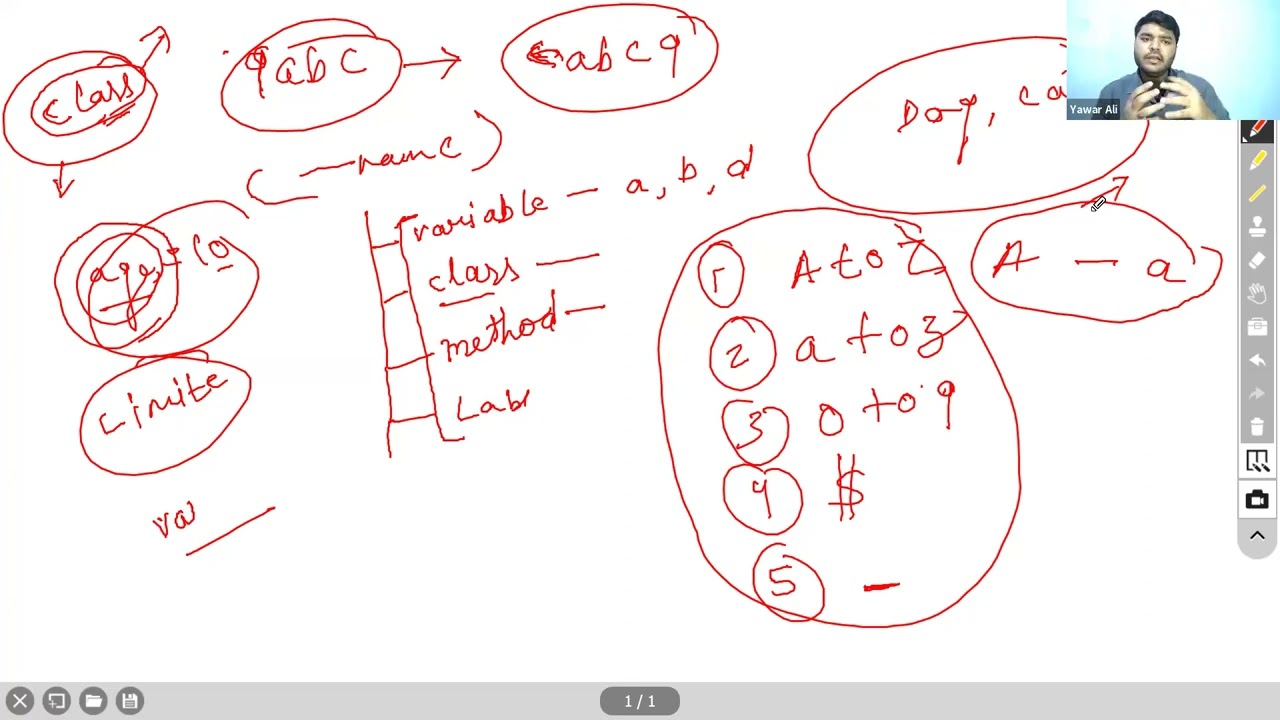 class
9abc
abc9
Dog, ca
Yawar Ali
name
variable — a, b, d
age = 10
class —
method —
Lab
limite
va
1 A to Z
2 a to z
3 0 to 9
4 $
5 _
A — a
1 / 1